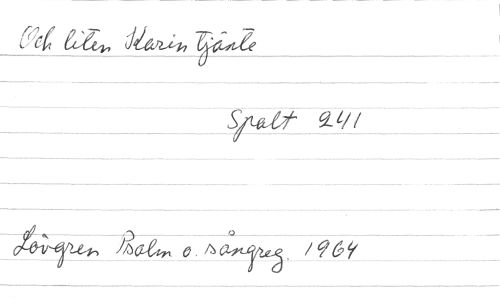 Och liten Karin tjänte
Spalt 241
Lövgren Psalm o. sångreg. 1964